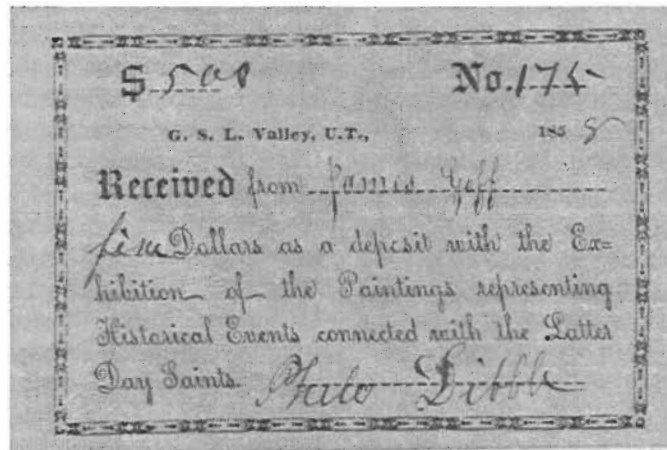 $ 500 No. 175
G. S. L. Valley, U.T., 1858
Received from James Goff
five Dollars as a deposit with the Ex=
hibition of the Paintings representing
Historical Events connected with the Latter
Day Saints. Philo Dibble